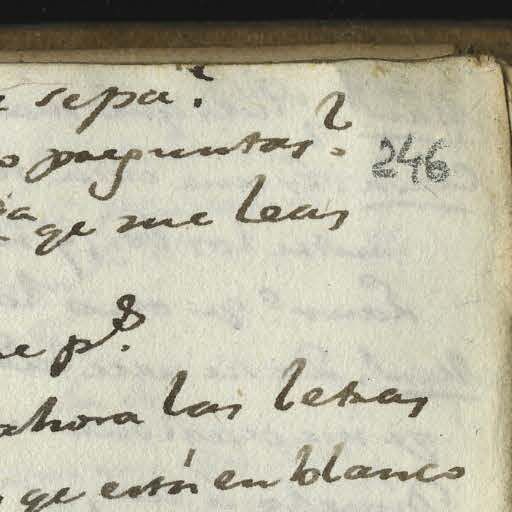 sepa?
preguntas?
246
qe me leas
ahora las letras
qe están en blanco